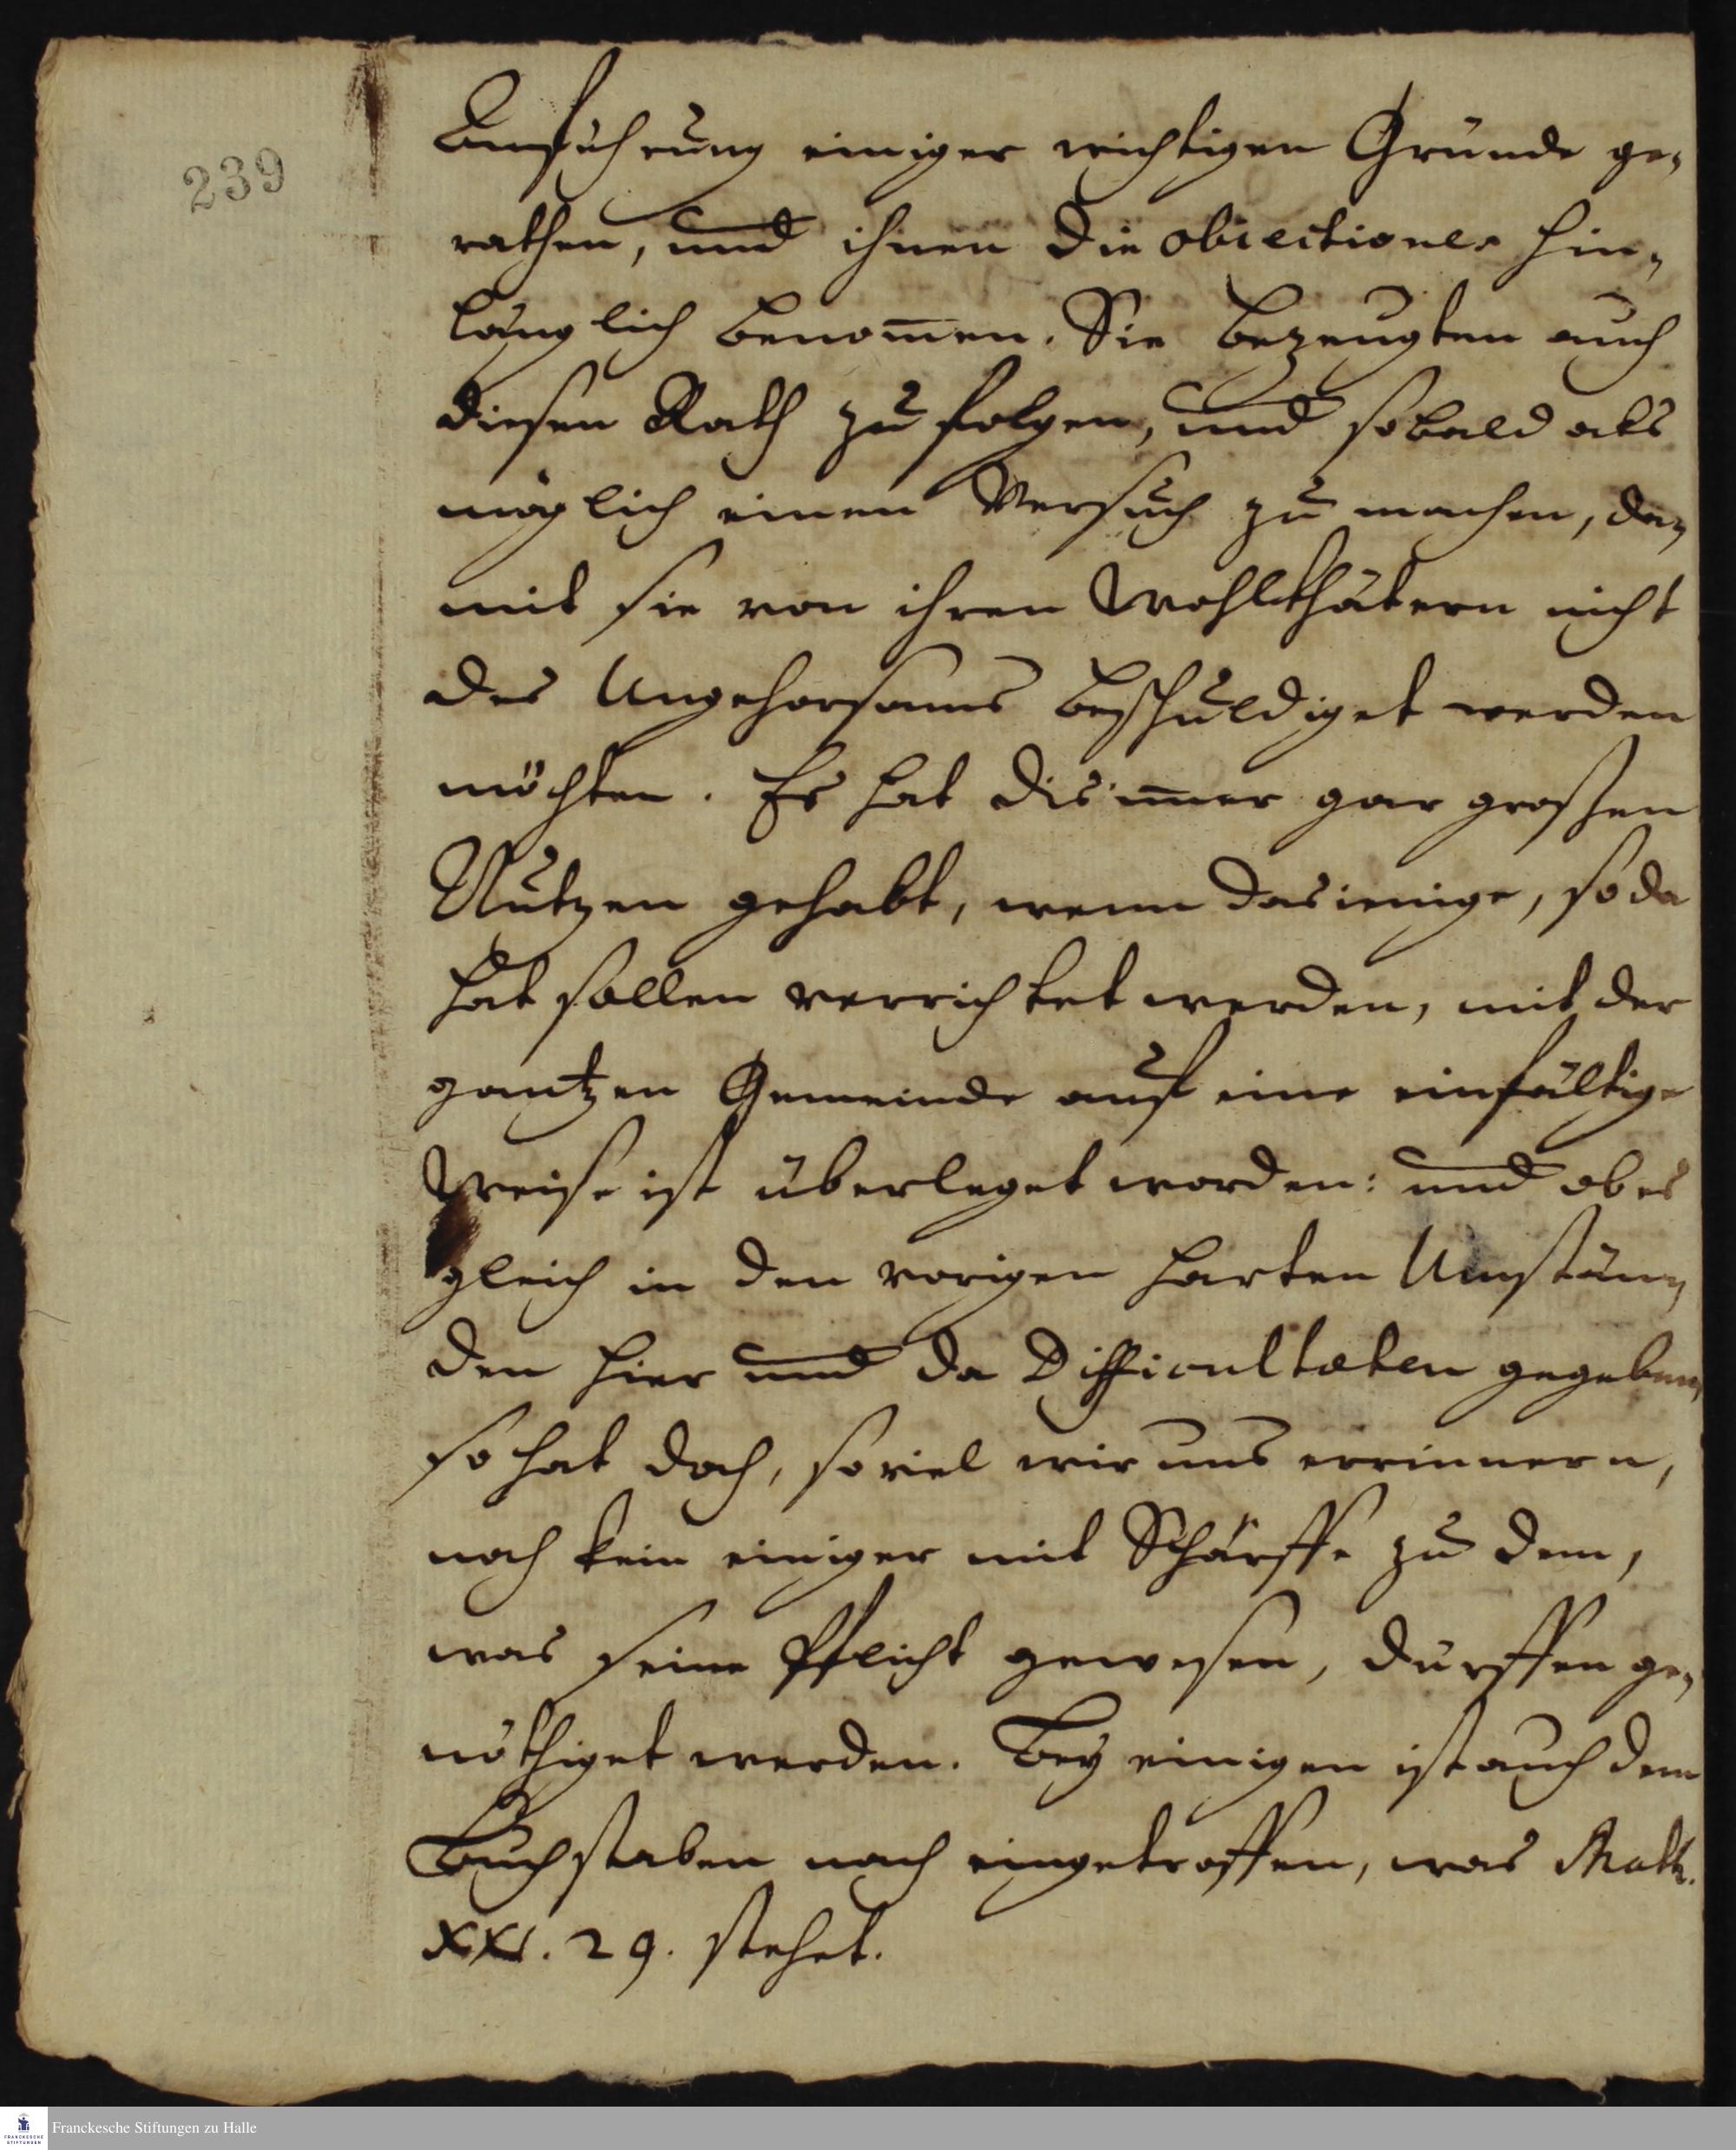 239
Anführung einiger wichtigen Gründe ge-
rathen, und ihnen die obiectiones hin-
länglich benom̅en. Sie bezeugten auch
diesen Rath zu folgen, und sobald als
möglich einen Versuch zu machen, da-
mit sie von ihren Wohlthätern nicht
des Ungehorsams beschuldiget werden
möchten. Es hat dis im̅er gar großen
Nutzen gehabt, wenn dasienige, so da
hat sollen verrichtet werden, mit der
gantzen Gemeinde auf eine einfältige
Weise ist überleget worden: und ob es
gleich in den vorigen harten Umstän-
den hier und da Difficultæten gegeben,
so hat doch, so viel wir uns errinnern,
noch kein einiger mit Schärffe zu dem,
was seine Pflicht gewesen, dürffen ge-
nöthiget werden. Bey einigen ist auch dem
Buchstaben nach eingetroffen, was Matth.
XXI. 29. stehet.
Franckesche Stiftungen zu Halle
FRANCKESCHE
STIFTUNGEN